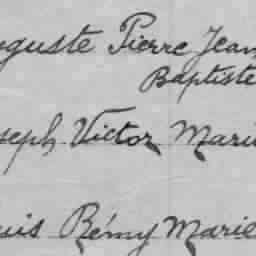 uguste Pierre Jean
Baptiste
seph Victor Marie
uis Rémy Marie